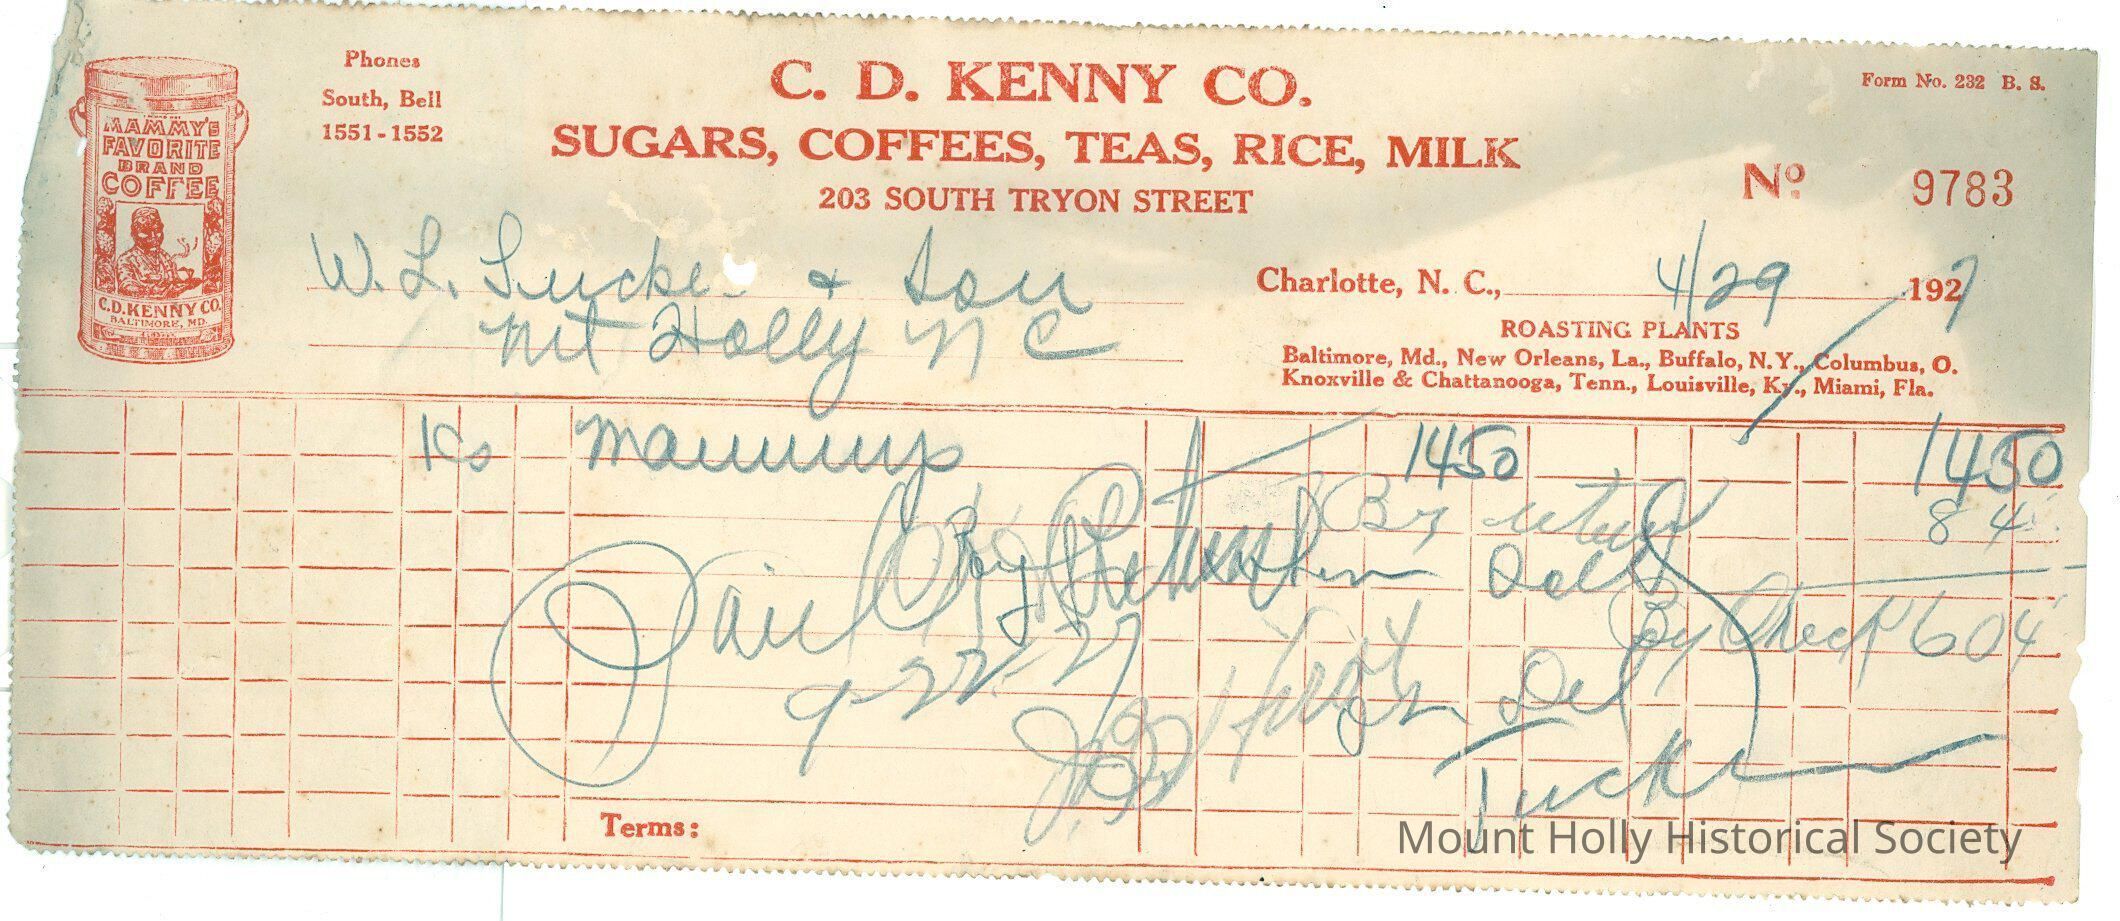 Phones
South, Bell
1551-1552
MAMMY'S
FAVORITE
BRAND
COFFEE
C.D. KENNY CO.
BALTIMORE, MD.
C. D. KENNY CO.
SUGARS, COFFEES, TEAS, RICE, MILK
203 SOUTH TRYON STREET
Form No. 232 B. S.
No. 9783
W. L. & Son
Mt Holly N C
Charlotte, N. C., 4/29 1927
ROASTING PLANTS
Baltimore, Md., New Orleans, La., Buffalo, N. Y., Columbus, O.
Knoxville & Chattanooga, Tenn., Louisville, Ky., Miami, Fla.
Mammys 1450 1450
By 84
Paid
By Check 604
9-22-27
Del
Tucker
Terms:
Mount Holly Historical Society